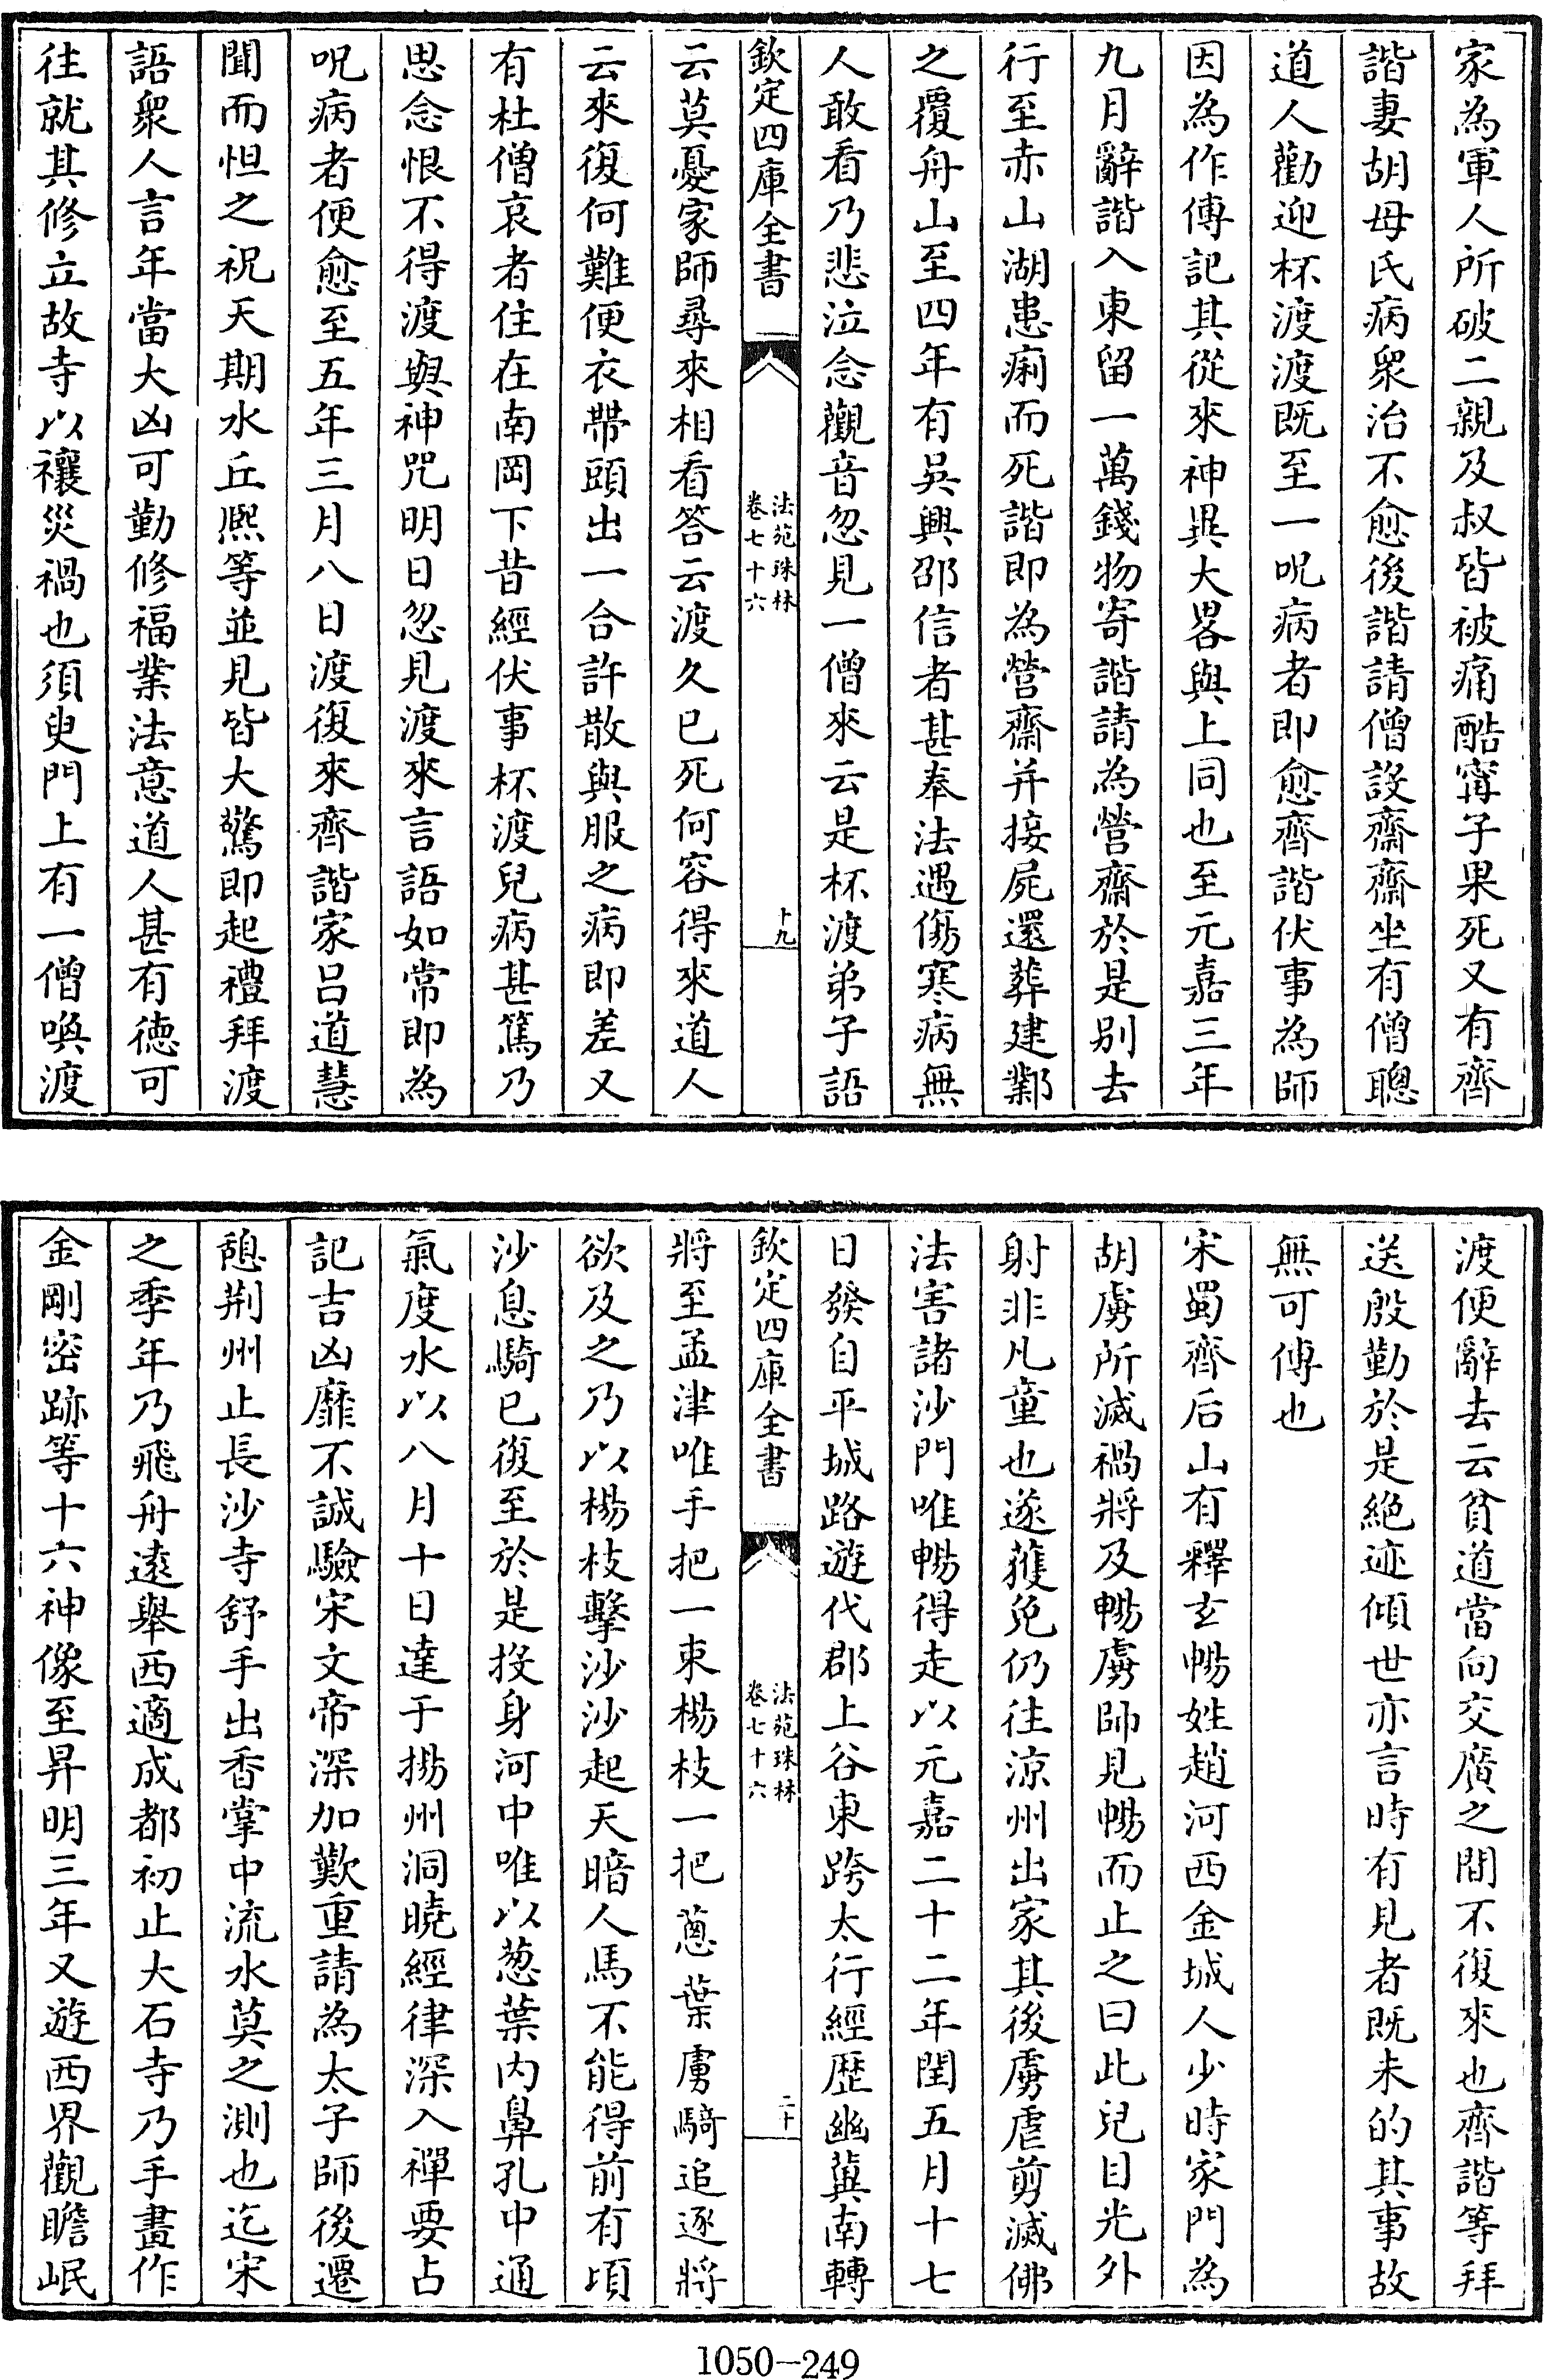 家為軍人所破二親及叔皆被痛酷寗子果死又有齊
諧妻胡母氏病衆治不愈後諧請僧設齋齋坐有僧聰
道人勸迎杯渡渡既至一呪病者即愈齊諧伏事為師
因為作傳記其從來神異大畧與上同也至元嘉三年
九月辭諧入東留一萬錢物寄諧請為營齋於是别去
行至赤山湖患痢而死諧即為營齋并接屍還葬建鄴
之覆舟山至四年有吳興邵信者甚奉法遇傷寒病無
人敢看乃悲泣念觀音忽見一僧來云是杯渡弟子語
欽定四庫全書
法苑珠林
卷七十六
十九
云莫憂家師尋來相看答云渡久已死何容得來道人
云來復何難便衣帶頭出一合許散與服之病即差又
有杜僧哀者住在南岡下昔經伏事杯渡兒病甚篤乃
思念恨不得渡與神咒明日忽見渡來言語如常即為
呪病者便愈至五年三月八日渡復來齊諧家吕道慧
聞而怛之祝天期水丘熈等並見皆大驚即起禮拜渡
語衆人言年當大凶可勤修福業法意道人甚有徳可
往就其修立故寺以禳災禍也須臾門上有一僧喚渡
渡便辭去云貧道當向交廣之間不復來也齊諧等拜
送殷勤於是絶迹傾世亦言時有見者既未的其事故
無可傳也
宋蜀齊后山有釋玄暢姓趙河西金城人少時家門為
胡虜所滅禍將及暢虜帥見暢而止之曰此兒目光外
射非凡童也遂獲免仍往涼州出家其後虜虐剪滅佛
法害諸沙門唯暢得走以元嘉二十二年閏五月十七
日發自平城路遊代郡上谷東跨太行經歴幽冀南轉
欽定四庫全書
法苑珠林
卷七十六
二十
將至孟津唯手把一束楊枝一把蔥葉虜騎追逐將
欲及之乃以楊枝擊沙沙起天暗人馬不能得前有頃
沙息騎已復至於是投身河中唯以葱葉内鼻孔中通
氣度水以八月十日達于揚州洞曉經律深入禪要占
記吉凶靡不誠驗宋文帝深加歎重請為太子師後遷
憩荆州止長沙寺舒手出香掌中流水莫之測也迄宋
之季年乃飛舟遠舉西適成都初止大石寺乃手畫作
金剛密跡等十六神像至昇明三年又遊西界觀瞻岷
1050-249